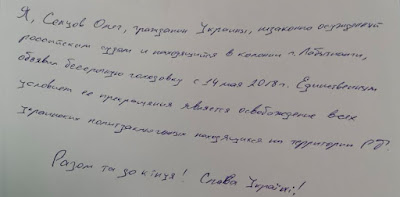 Я, Сенцов Олег, гражданин Украины, незаконно осужденный
российским судом и находящийся в колонии г. Лабытнанги,
объявил бессрочную голодовку с 14 мая 2018г. Единственным
условием ее прекращения является освобождение всех
украинских политзаключенных находящихся на территории РФ.
Разом та до кінця! Слава Україні!